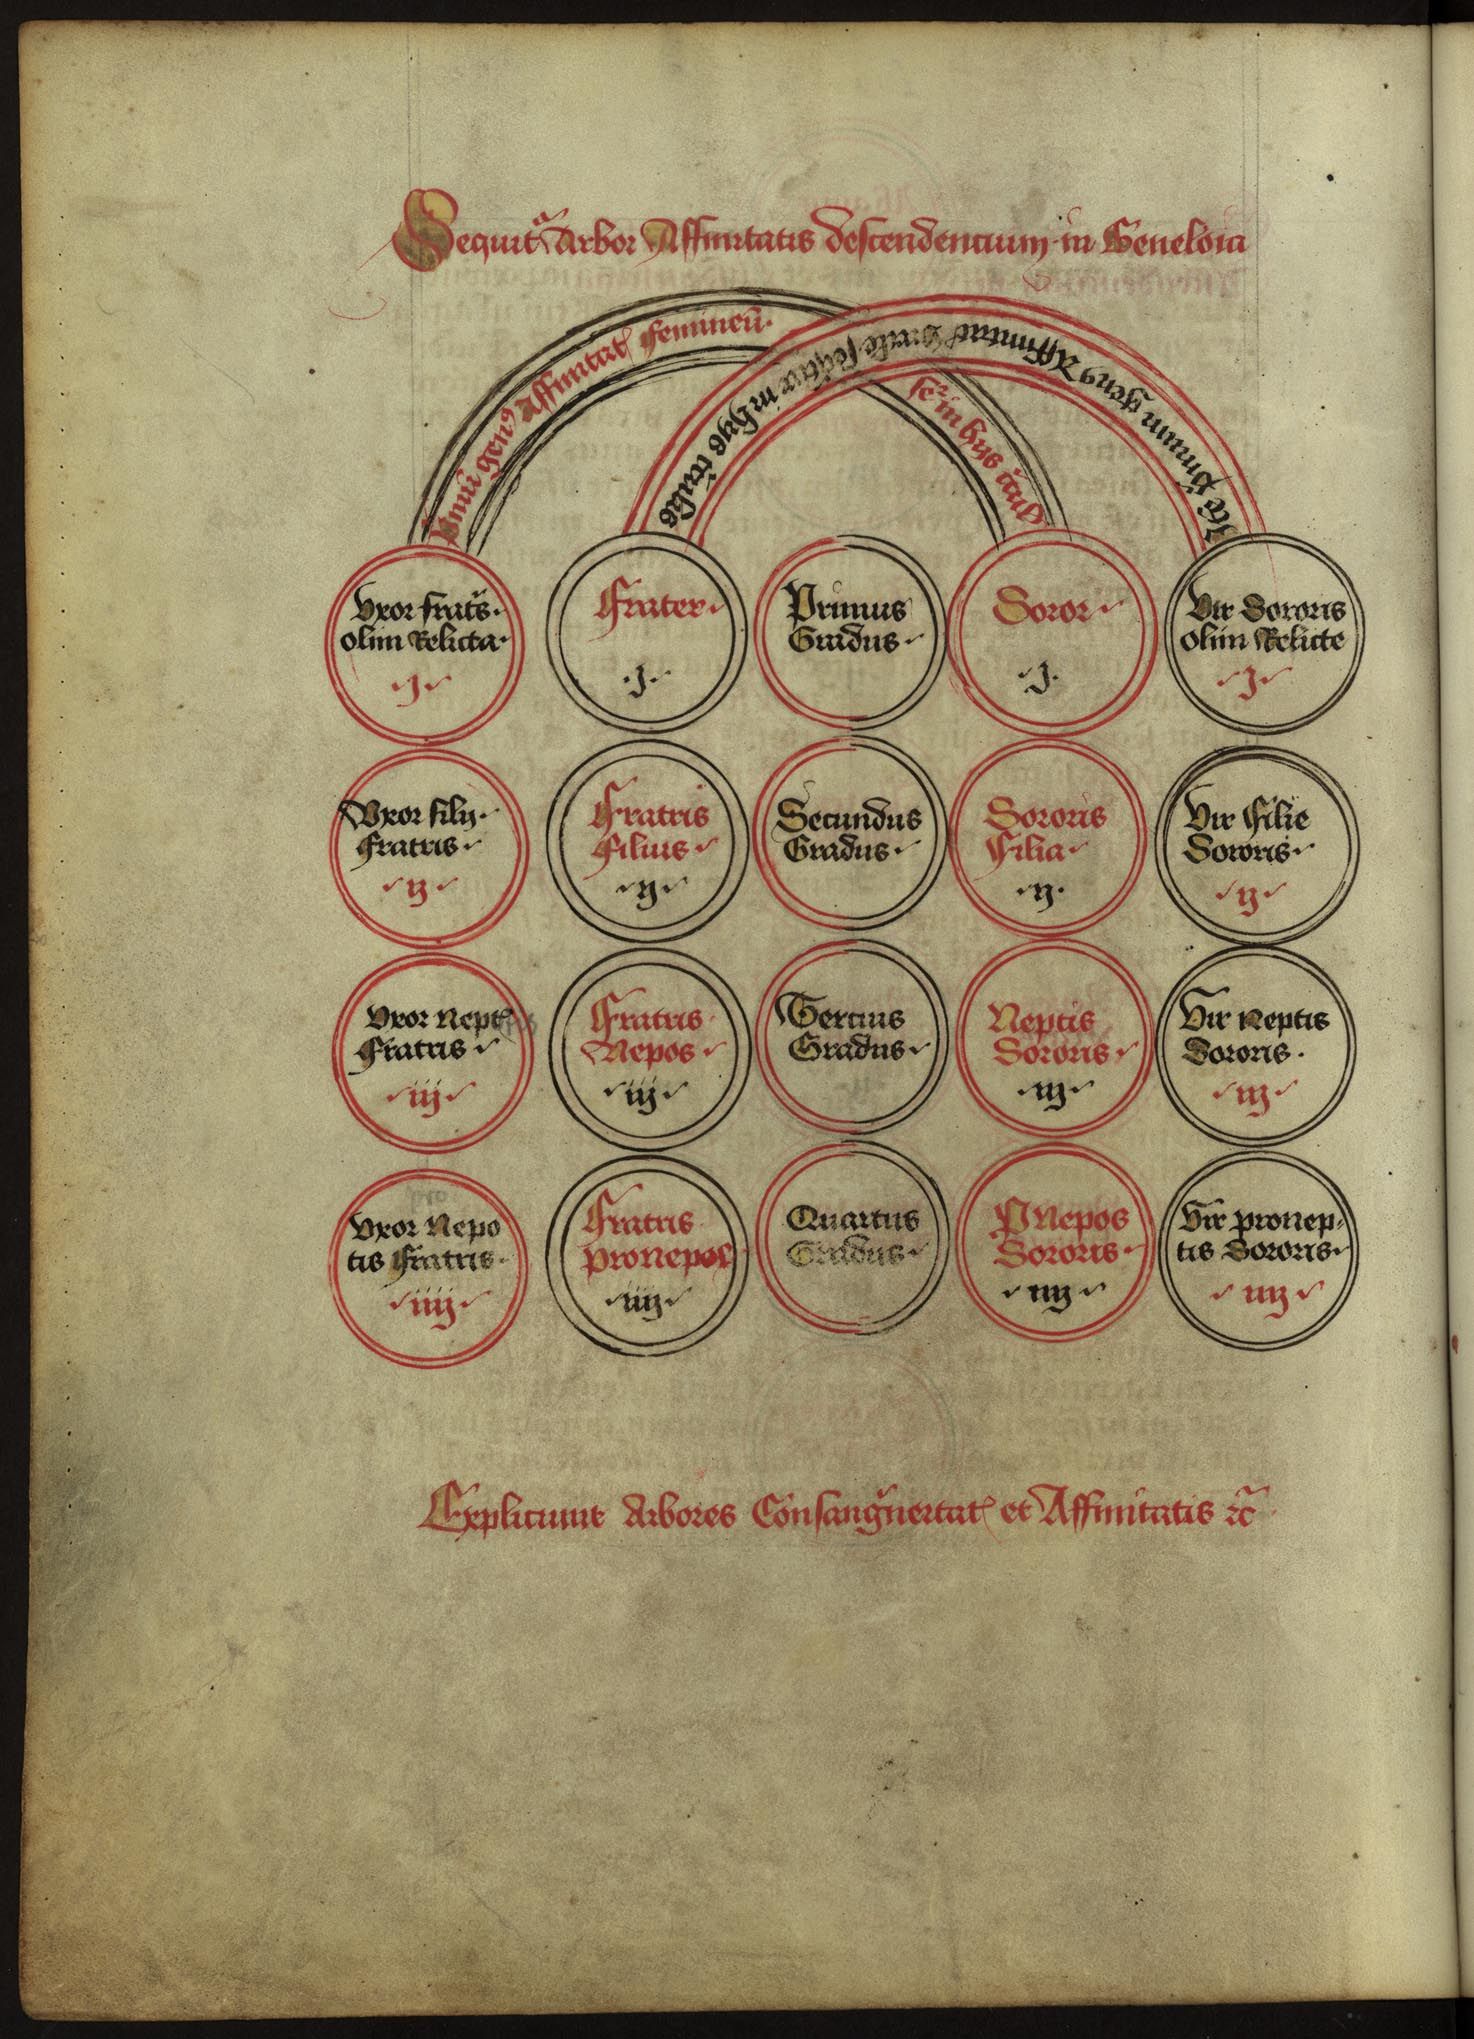 Sequit̃ Arbor Affinitatis descendencium in Geneloia
gen9 Affinitat̃ femineũ.
in hys
gen9 Affinitat̃ in hys
Vxor frat̃s.
olim Relicta.
.j.
Frater.
.j.
Primus
Gradus.
Soror.
.j.
Vir Sororis
olim Relicte
.j.
Vxor filij.
fratris.
.ij.
Fratris
filius.
.ij.
Secundus
Gradus.
Sororis
filia.
.ij.
Vir filie
Sororis.
.ij.
Vxor Nept̃
fratris.
.iij.
Fratris
Nepos.
.iij.
Tercius
Gradus.
Neptis
Sororis.
.iij.
Vir Neptis
Sororis.
.iij.
Vxor Nepo
tis fratris.
.iiij.
Fratris
pronepos
.iiij.
Quartus
Gradus.
PNepos
Sororis.
.iiij.
Vir pronep
tis Sororis.
.iiij.
Expliciunt Arbores Consangᵘneitat̃ et Affinitatis ꝛc̃